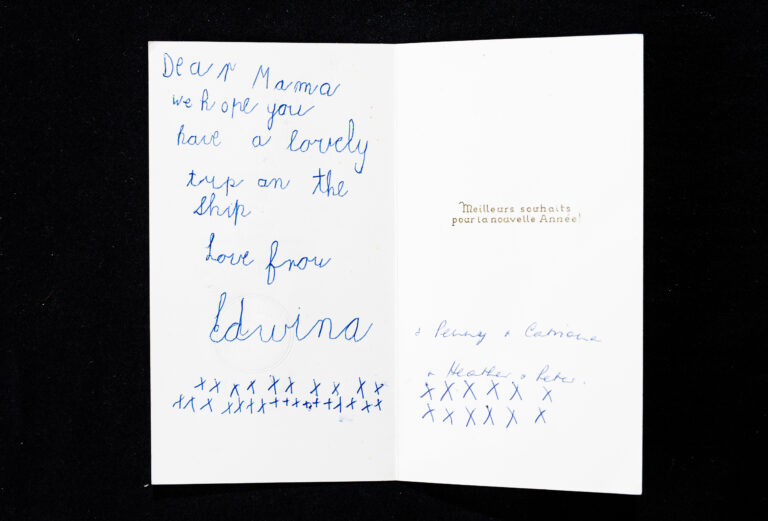 Dear Mama
we hope you
have a lovely
trip on the
ship
Love from
Edwina
xx xx xx x x x x
xxx xxxx++x+++xxxxx
Meilleurs souhaits
pour la nouvelle Année!
& Penny & Catriona
& Heather & Peter.
x x x x x x
x x x x x x